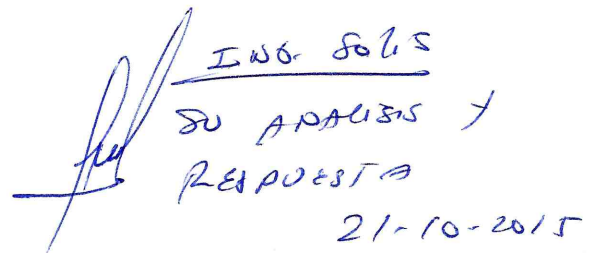 ING. SOLIS
SU ANALISIS Y
RESPUESTA
21-10-2015